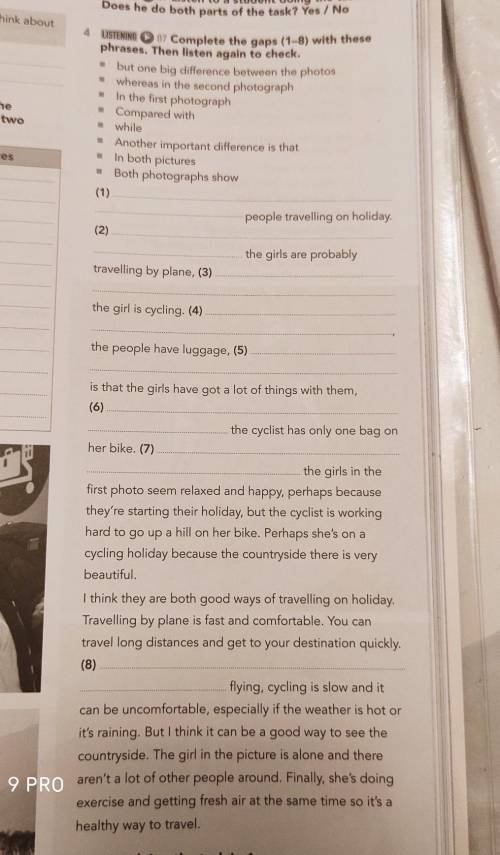 Does he do both parts of the task? Yes / No
hink about
4 LISTENING 07 Complete the gaps (1–8) with these
phrases. Then listen again to check.
but one big difference between the photos
whereas in the second photograph
In the first photograph
Compared with
while
Another important difference is that
In both pictures
Both photographs show
he
two
es
(1)
people travelling on holiday.
(2)
the girls are probably
travelling by plane, (3)
the girl is cycling. (4)
the people have luggage, (5)
is that the girls have got a lot of things with them,
(6)
the cyclist has only one bag on
her bike. (7)
the girls in the
first photo seem relaxed and happy, perhaps because
they're starting their holiday, but the cyclist is working
hard to go up a hill on her bike. Perhaps she's on a
cycling holiday because the countryside there is very
beautiful.
I think they are both good ways of travelling on holiday.
Travelling by plane is fast and comfortable. You can
travel long distances and get to your destination quickly.
(8)
flying, cycling is slow and it
can be uncomfortable, especially if the weather is hot or
it's raining. But I think it can be a good way to see the
countryside. The girl in the picture is alone and there
aren't a lot of other people around. Finally, she's doing
exercise and getting fresh air at the same time so it's a
healthy way to travel.
9 PRO